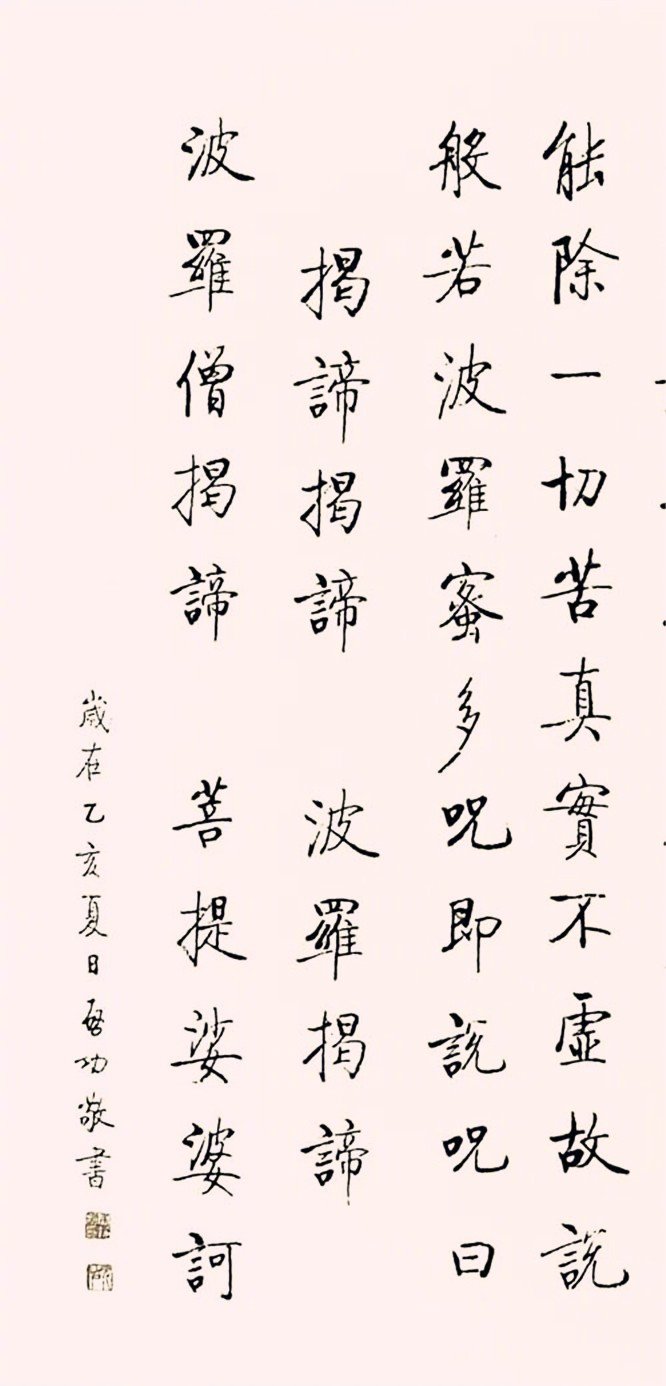 能除一切苦真實不虛故説
般若波羅蜜多呪即説呪曰
揭諦揭諦 波羅揭諦
波羅僧揭諦 菩提娑婆訶
歲在乙亥夏日啓功敬書